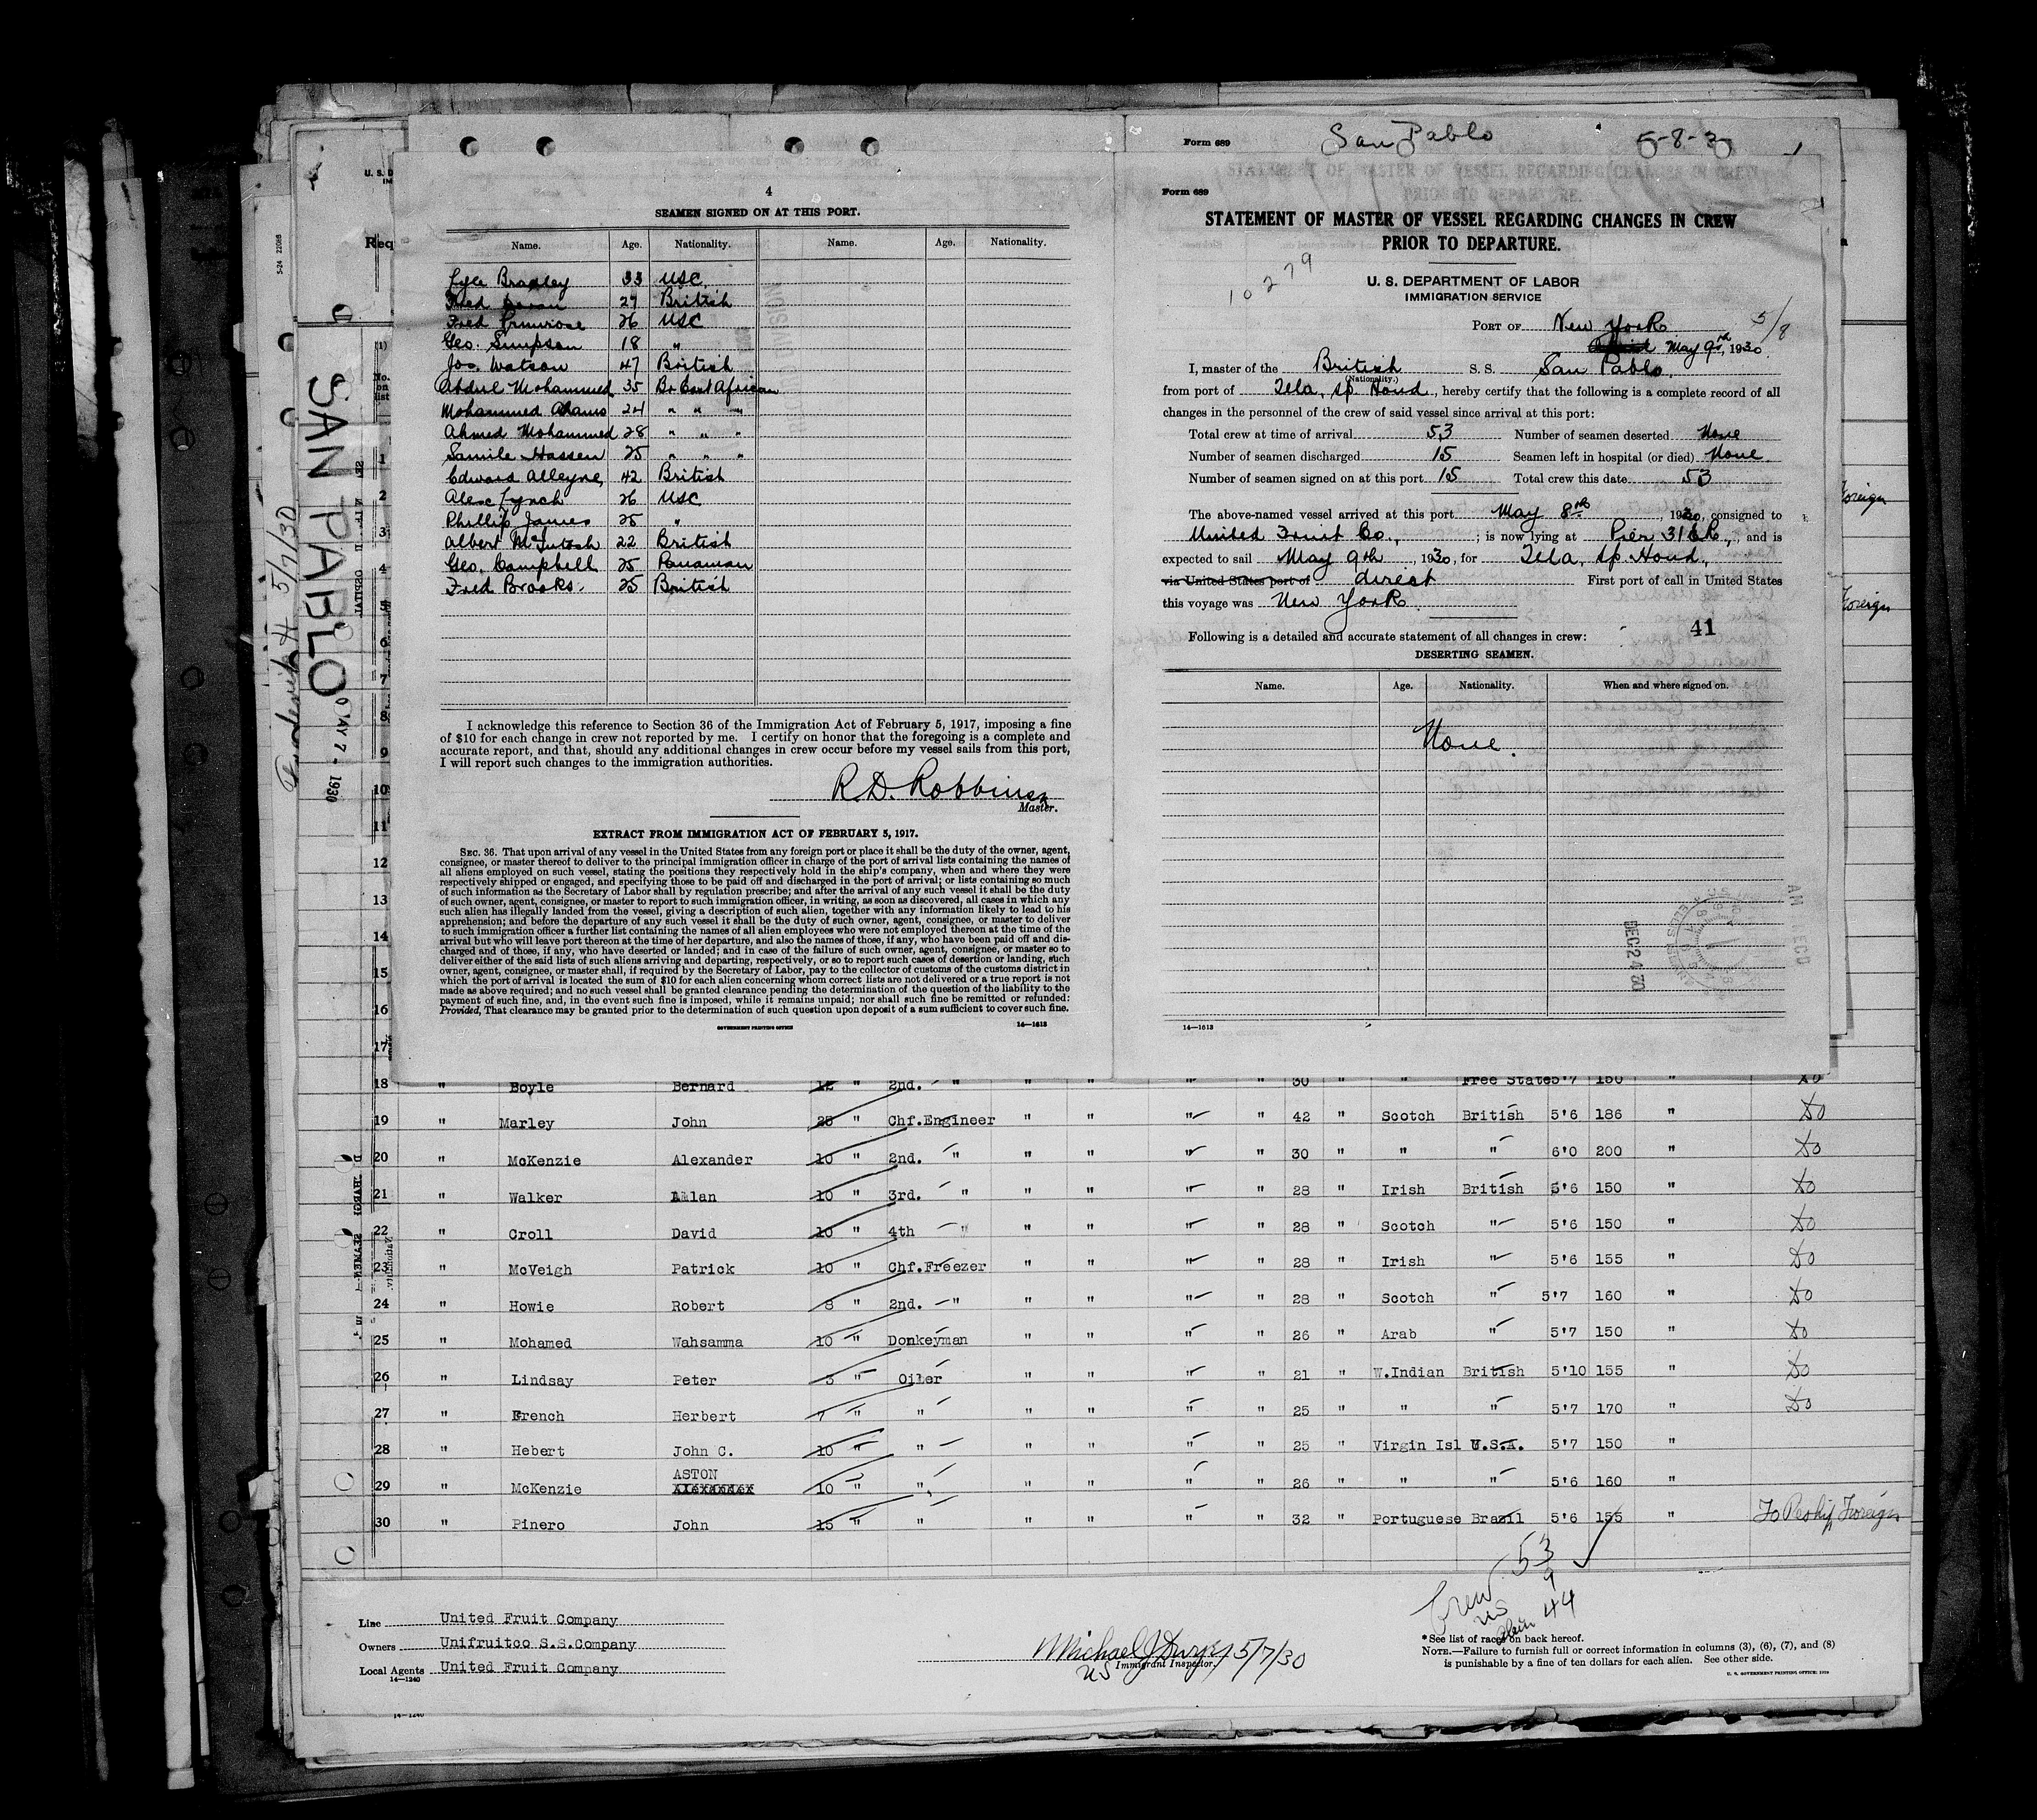 4
SEAMEN SIGNED ON AT THIS PORT.
Name. Age. Nationality. Name. Age. Nationality.
Lyle Bradley 33 USC.
Fred 27 British
Fred Primrose 26 USC
Geo. Simpson 18 "
Jos. Watson 47 British
Abdul Mohammed 35 Br. East African
Mohammed Adams 24 " " "
Ahmed Mohammed 28 " " "
Samile Hassen 25 " " "
Edward Alleyne, 42 British
Alex Lynch 26 USC
Phillip James 25 "
Albert McIntosh 22 British
Geo. Campbell 25 Panaman
Fred Brooks. 25 British
I acknowledge this reference to Section 36 of the Immigration Act of February 5, 1917, imposing a fine
of $10 for each change in crew not reported by me. I certify on honor that the foregoing is a complete and
accurate report, and that, should any additional changes in crew occur before my vessel sails from this port,
I will report such changes to the immigration authorities.
R.D. Robbins
Master.
EXTRACT FROM IMMIGRATION ACT OF FEBRUARY 5, 1917.
SEC. 36. That upon arrival of any vessel in the United States from any foreign port or place it shall be the duty of the owner, agent,
consignee, or master thereof to deliver to the principal immigration officer in charge of the port of arrival lists containing the names of
all aliens employed on such vessel, stating the positions they respectively hold in the ship's company, when and where they were
respectively shipped or engaged, and specifying those to be paid off and discharged in the port of arrival; or lists containing so much
of such information as the Secretary of Labor shall by regulation prescribe; and after the arrival of any such vessel it shall be the duty
of such owner, agent, consignee, or master to report to such immigration officer, in writing, as soon as discovered, all cases in which any
such alien has illegally landed from the vessel, giving a description of such alien, together with any information likely to lead to his
apprehension; and before the departure of any such vessel it shall be the duty of such owner, agent, consignee, or master to deliver
to such immigration officer a further list containing the names of all alien employees who were not employed thereon at the time of the
arrival but who will leave port thereon at the time of her departure, and also the names of those, if any, who have been paid off and dis-
charged and of those, if any, who have deserted or landed; and in case of the failure of such owner, agent, consignee, or master so to
deliver either of the said lists of such aliens arriving and departing, respectively, or so to report such cases of desertion or landing, such
owner, agent, consignee, or master shall, if required by the Secretary of Labor, pay to the collector of customs of the customs district in
which the port of arrival is located the sum of $10 for each alien concerning whom correct lists are not delivered or a true report is not
made as above required; and no such vessel shall be granted clearance pending the determination of the question of the liability to the
payment of such fine, and, in the event such fine is imposed, while it remains unpaid; nor shall such fine be remitted or refunded:
Provided, That clearance may be granted prior to the determination of such question upon deposit of a sum sufficient to cover such fine.
GOVERNMENT PRINTING OFFICE 14—1613
Form 689 San Pablo 5-8-30
Form 689
STATEMENT OF MASTER OF VESSEL REGARDING CHANGES IN CREW
PRIOR TO DEPARTURE.
10279
U. S. DEPARTMENT OF LABOR
IMMIGRATION SERVICE
PORT OF New York 5/8
May 9th, 1930.
I, master of the British S. S. San Pablo.
(Nationality.)
from port of Tela, Sp Hond., hereby certify that the following is a complete record of all
changes in the personnel of the crew of said vessel since arrival at this port:
Total crew at time of arrival 53 Number of seamen deserted None
Number of seamen discharged 15 Seamen left in hospital (or died) None.
Number of seamen signed on at this port 15 Total crew this date 53
The above-named vessel arrived at this port May 8th, 1930, consigned to
United Fruit Co., ; is now lying at Pier 3 , and is
expected to sail May 9th, 1930, for Tela, Sp. Hond.,
via United States port of direct First port of call in United States
this voyage was New York.
Following is a detailed and accurate statement of all changes in crew: 41
DESERTING SEAMEN.
Name. Age. Nationality. When and where signed on.
None.
DEC 24 30
AM RECD
14—1613
Frederick H 5/7/30
SAN PABLO
MAY 7 - 1930
5-24 22065
U. S. D
IM
Req
(1)
No. on list
1
2
3
4
5
6
7
8
9
10
11
12
13
14
15
16
17
Foreign
Foreign
18 " Boyle Bernard 12 " 2nd. " " " " " 30 " " Free State 5'7 150 " Do
19 " Marley John 25 " Chf.Engineer " " " " 42 " Scotch British 5'6 186 " Do
20 " McKenzie Alexander 10 " 2nd. " " " " " 30 " " " 6'0 200 " Do
21 " Walker Allan 10 " 3rd. " " " " " 28 " Irish British 5'6 150 " Do
22 " Croll David 10 " 4th " " " " " 28 " Scotch " 5'6 150 " Do
23 " McVeigh Patrick 10 " Chf.Freezer " " " " 28 " Irish " 5'6 155 " Do
24 " Howie Robert 8 " 2nd. " " " " " 28 " Scotch " 5'7 160 " Do
25 " Mohamed Wahsamma 10 " Donkeyman " " " " 26 " Arab " 5'7 150 " Do
26 " Lindsay Peter 3 " Oiler " " " " 21 " W.Indian British 5'10 155 " Do
27 " French Herbert 7 " " " " " " 25 " " " 5'7 170 " Do
28 " Hebert John C. 10 " " " " " " 25 " Virgin Isl U.S.A. 5'7 150 "
ASTON
29 " McKenzie Alexander 10 " " " " " " 26 " " " 5'6 160 "
30 " Pinero John 15 " " " " " " 32 " Portuguese Brazil 5'6 155 " To Reship Foreign
Crew 53
US 9
Alien 44
Line United Fruit Company
Owners Unifruitco S.S.Company
Local Agents United Fruit Company
14—1240
Michael J Dwyer 5/7/30
US Immigrant Inspector.
* See list of races on back hereof.
NOTE.—Failure to furnish full or correct information in columns (3), (6), (7), and (8)
is punishable by a fine of ten dollars for each alien. See other side.
U. S. GOVERNMENT PRINTING OFFICE: 1929
14—1240